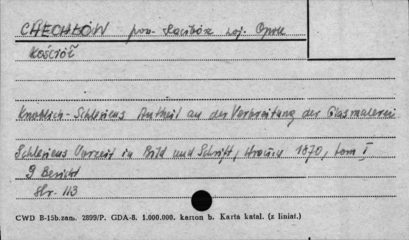 CHECHŁÓW pow. Racibórz woj. Opole
Kościół
Knoblich - Schlesiens Antheil an der Verbreitung der Glasmalerei
Schlesiens Vorzeit in Bild und Schrift, Wrocław 1870, tom I
9 Bericht
str. 113
CWD B-15b.zam. 2899/P. GDA-8. 1.000.000. karton b. Karta katal. (z liniat.)